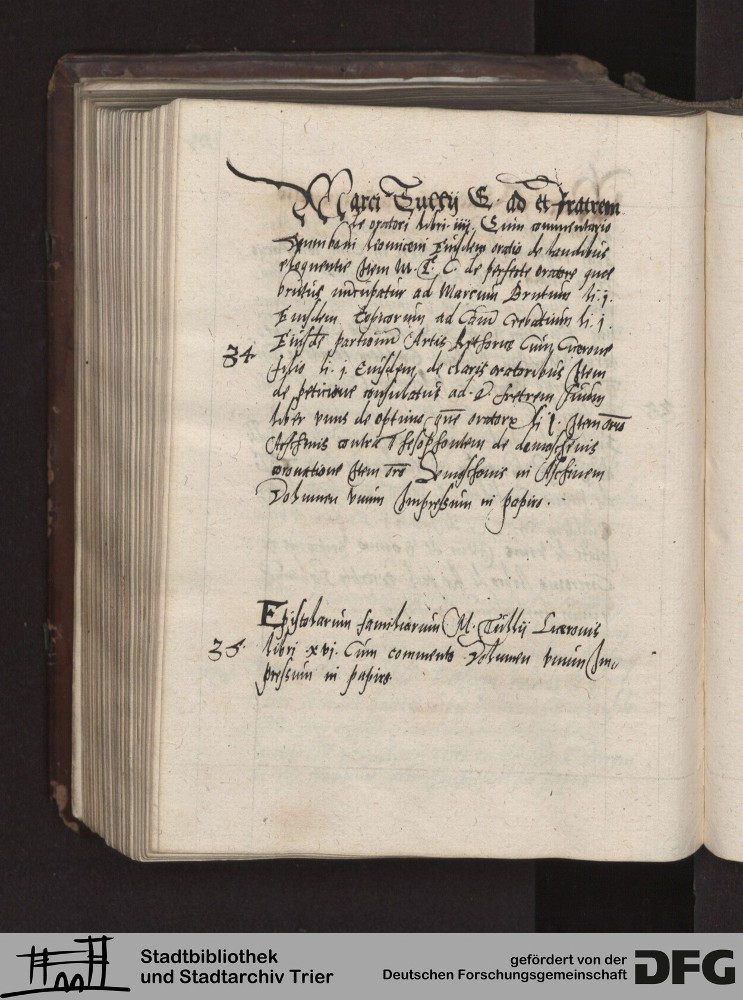 Marci Tullij C. ad Q. fratrem
De oratori libri iiij. Cum commentario
Omniboni leoniceni Eiusdem oratio de laudibus
eloquentie Item M. T. C. de perfecto oratore que
brutus nuncupatur ad Marcum Brutum li. j.
Eiusdem Topicorum ad Caium Trebatium li. j.
34. Eiusdē partitionū Artis Rethorice Cum Cicerone
filio li. j. Eiusdem de claris oratoribus Item
de peticione consulatus ad Q. fratrem suum
liber unus de optimo que oratorū li j. Item orōs
Aeschinis contra Thesiphontem de demosthenis
coronatione Item orō Demosthenis in Aschinem
Volumen vnum Impressum in papiro.
Epistolarum familiarium M. Tullij Ciceronis
35. libri xvj. Cum commento Volumen vnum Im-
pressum in papiro
Stadtbibliothek
und Stadtarchiv Trier
gefördert von der
Deutschen Forschungsgemeinschaft
DFG